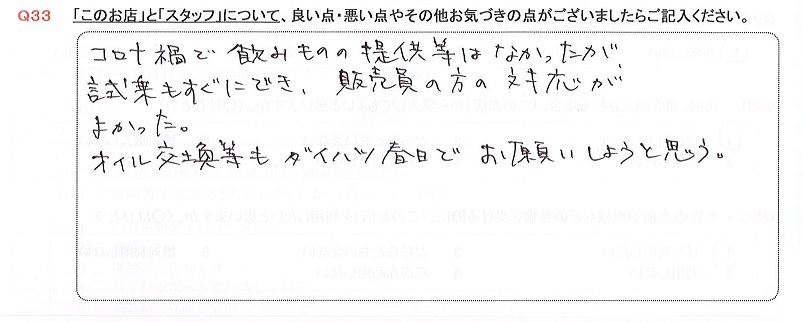 Q33 「このお店」と「スタッフ」について、良い点・悪い点やその他お気づきの点がございましたらご記入ください。
コロナ禍で飲みものの提供等はなかったが、
試乗もすぐにでき、販売員の方の対応が
よかった。
オイル交換等もダイハツ春日でお願いしようと思う。